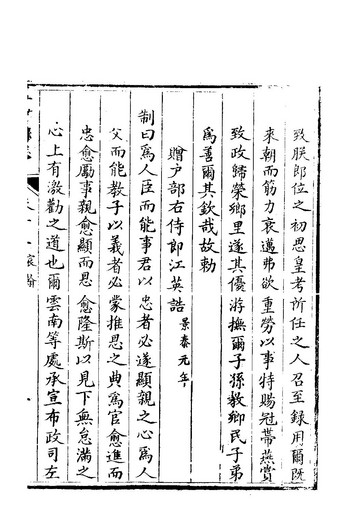 致朕即位之初思皇考所任之人召至錄用爾既
來朝而筋力衰邁弗欲重勞以事特賜冠帶燕賞
致政歸榮鄉里遂其優游撫爾子孫教鄉民子弟
爲善爾其欽哉故勅
贈户部右侍郎江英誥 景泰元年
制曰爲人臣而能事君以忠者必遂顯親之心爲人
父而能教子以義者必蒙推恩之典爲官愈進而
忠愈厲事親愈顯而恩愈隆斯以見下無怠滿之
心上有激勸之道也爾雲南等處承宣布政司左